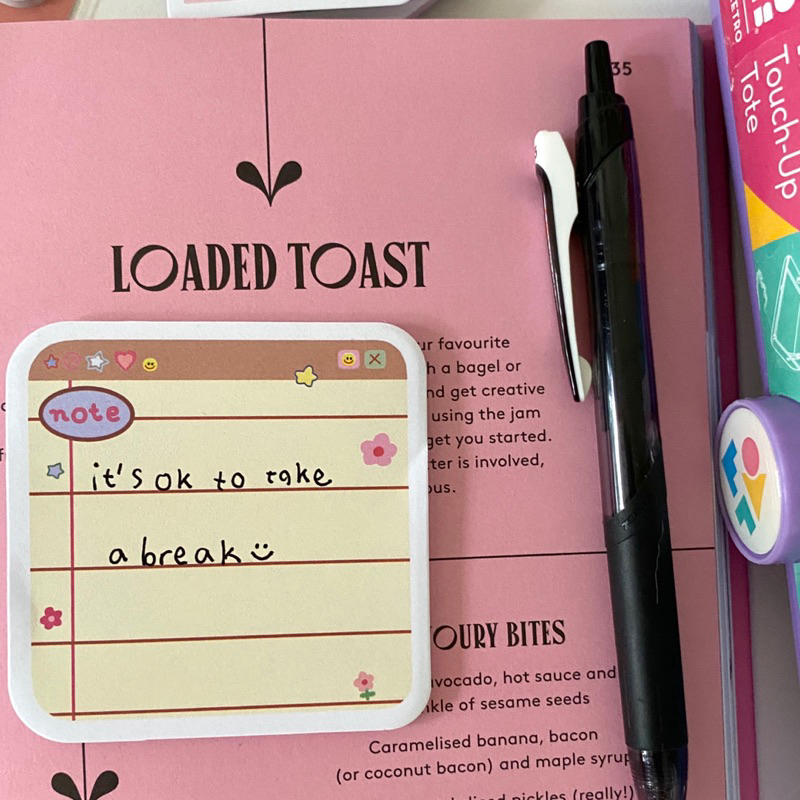 35
LOADED TOAST
favourite
a bagel or
get creative
using the jam
get you started.
is involved,
note
it's ok to take
a break
BITES
avocado, hot sauce and
of sesame seeds
Caramelised banana, bacon
(or coconut bacon) and maple syrup
pickles (really!)
RETRO
Touch-Up
Tote